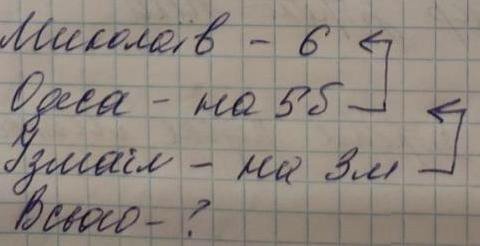 Миколаїв - 6
Одеса - на 5б
Ізмаїл - на 3м
Всього - ?